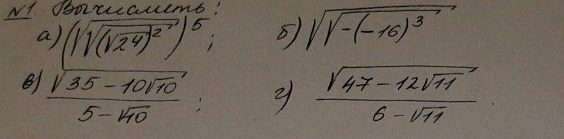 №1. Вычислить:
а) (√√(√24)²)⁵; б) √√-(-16)³
в) √35 - 10√10 / 5 - √10; г) √47 - 12√11 / 6 - √11.